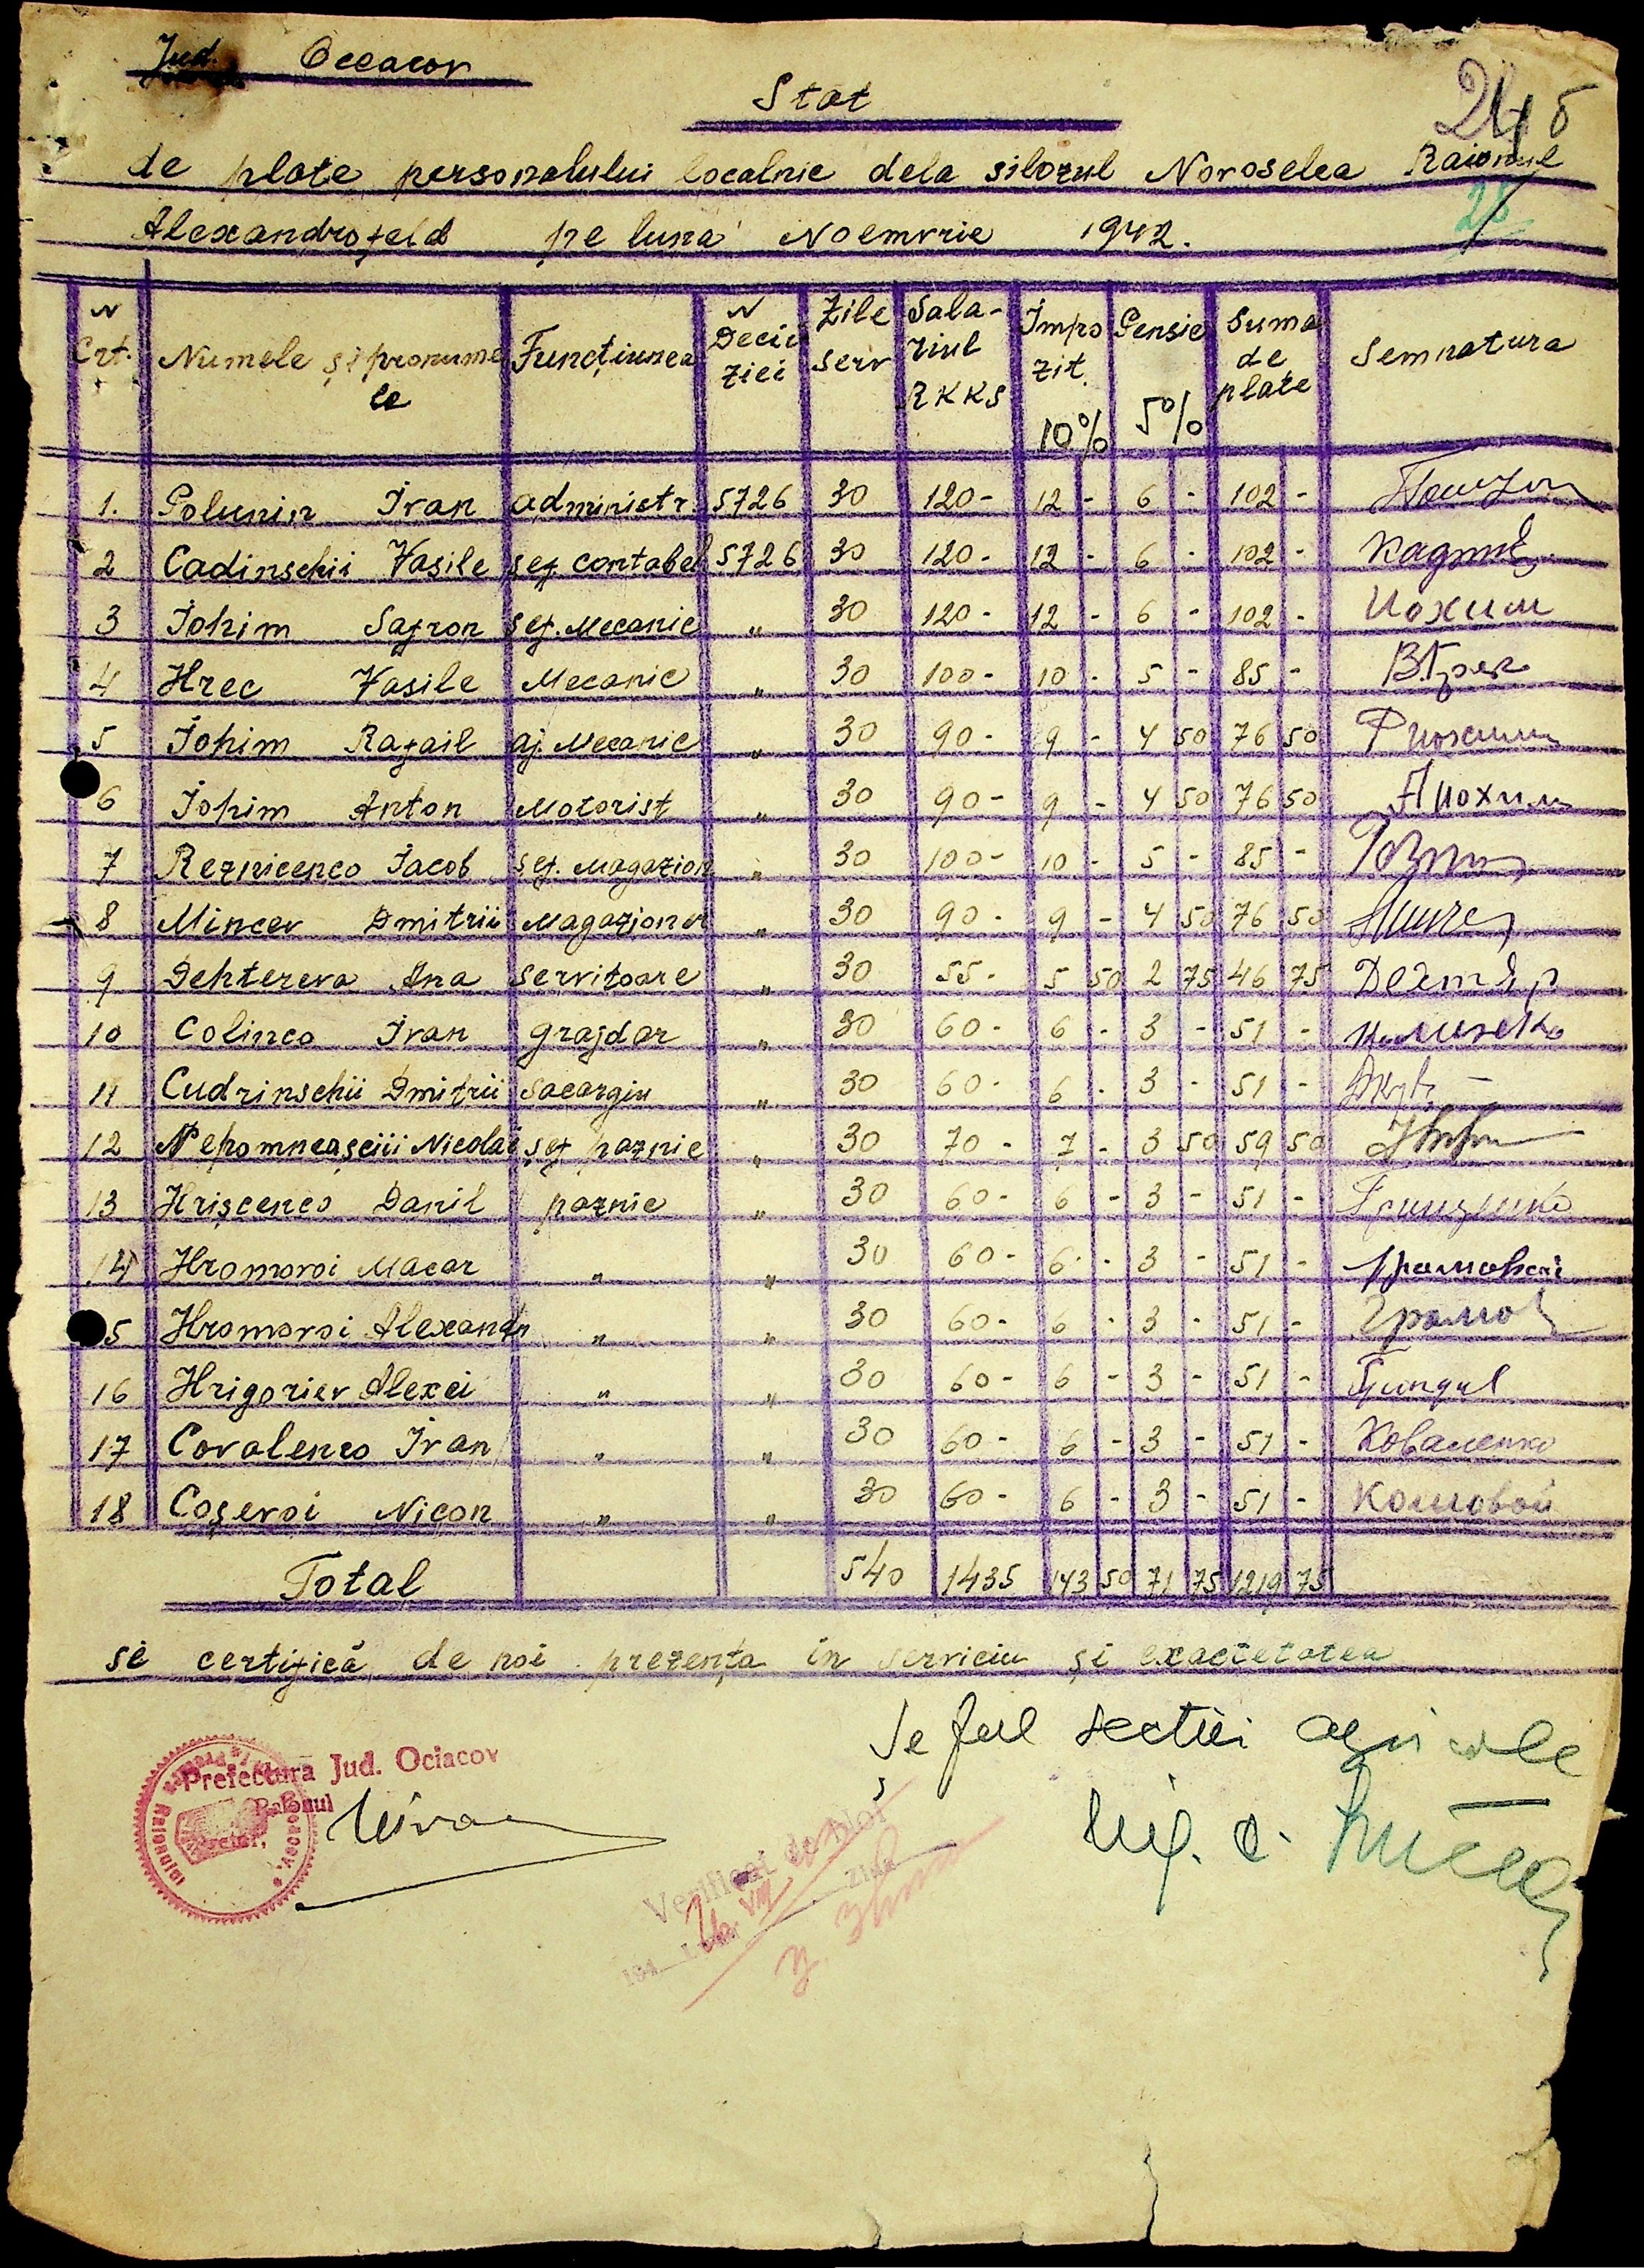 Jud. Occacov
Stat
245
de plate personalului localnic dela silozul Novoselca Raionul
28
Alexandrofeld pe luna Noemvrie 1942.
N Crt. Numele și pronumele Funcțiunea N Deciziei Zile serv Salariul RKKS Impozit 10% Pensie 5% Suma de plate Semnatura
1. Polunin Ivan administr. 5726 30 120- 12 - 6 - 102 -
2 Cadinschii Vasile șef contabel 5726 30 120- 12 - 6 - 102 -
3 Iohim Safron șef. Mecanic " 30 120- 12 - 6 - 102 - Иохим
4 Hrec Vasile Mecanic " 30 100- 10 - 5 - 85 - В.Грек
5 Iohim Rafail aj. Mecanic " 30 90- 9 - 4 50 76 50 Р Иохим
6 Iohim Anton Motorist " 30 90- 9 - 4 50 76 50 А Иохим
7 Reznicenco Iacob șef. Magazion " 30 100- 10 - 5 - 85 -
8 Mincev Dmitrii Magazioner " 30 90- 9 - 4 50 76 50
9 Dehtereva Ana servitoare " 30 55- 5 50 2 75 46 75
10 Colinco Ivan grajdar " 30 60- 6 - 3 - 51 -
11 Cudrinschii Dmitrii sacargiu " 30 60- 6 - 3 - 51 -
12 Nepomneașciii Nicolai șef paznic " 30 70- 7 - 3 50 59 50
13 Hrișcenco Danil paznic " 30 60- 6 - 3 - 51 -
14 Hromovoi Macar " " 30 60- 6 - 3 - 51 -
5 Hromovoi Alexandr " " 30 60- 6 - 3 - 51 -
16 Hrigoriev Alexei " " 30 60- 6 - 3 - 51 -
17 Covalenco Ivan " " 30 60- 6 - 3 - 51 - Коваленко
18 Coșevoi Nicon " " 30 60- 6 - 3 - 51 - Кошовой
Total 540 1435 143 50 71 75 1219 75
se certifică de noi prezența in serviciu și exactetatea
Șeful sectiei agricole
Prefectura Jud. Ociacov
Raionul
Ing. C.
Verificat de noi
Ziua
194 Luna